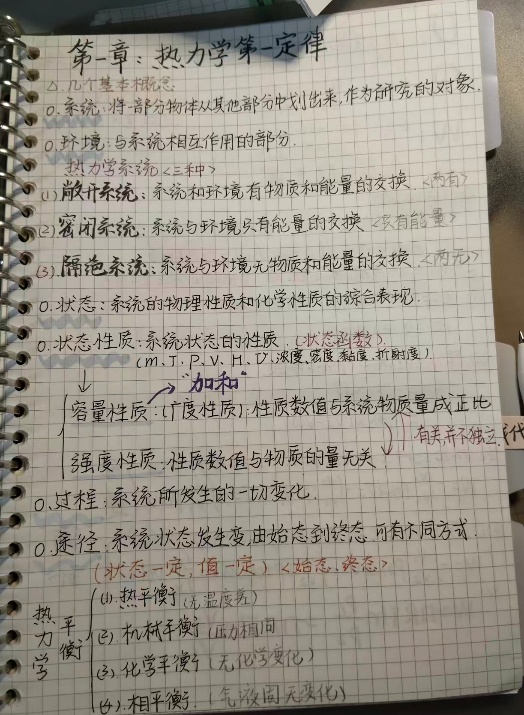 第一章：热力学第一定律
△.几个基本概念
O.系统：将一部分物体从其他部分中划出来，作为研究的对象.
O.环境：与系统相互作用的部分.
热力学系统<三种>
(1)敞开系统：系统和环境有物质和能量的交换.<两有>
(2)密闭系统：系统与环境只有能量的交换<只有能量>
(3).隔绝系统：系统与环境无物质和能量的交换.<两无>
O.状态：系统的物理性质和化学性质的综合表现.
O.状态性质：系统状态的性质.(状态函数)
(m、T、P、V、H、U、浓度、密度、黏度、折射度)
↓ "加和"
容量性质：(广度性质)：性质数值与系统物质量成正比
有关并不独立.
强度性质：性质数值与物质的量无关
O.过程：系统所发生的一切变化.
O.途径：系统状态发生变，由始态到终态.可有不同方式.
(状态一定，值一定)<始态、终态>
热力学平衡
(1).热平衡(无温度差)
(2).机械平衡(压力相同)
(3).化学平衡(无化学变化)
(4).相平衡.(气液固无变化)